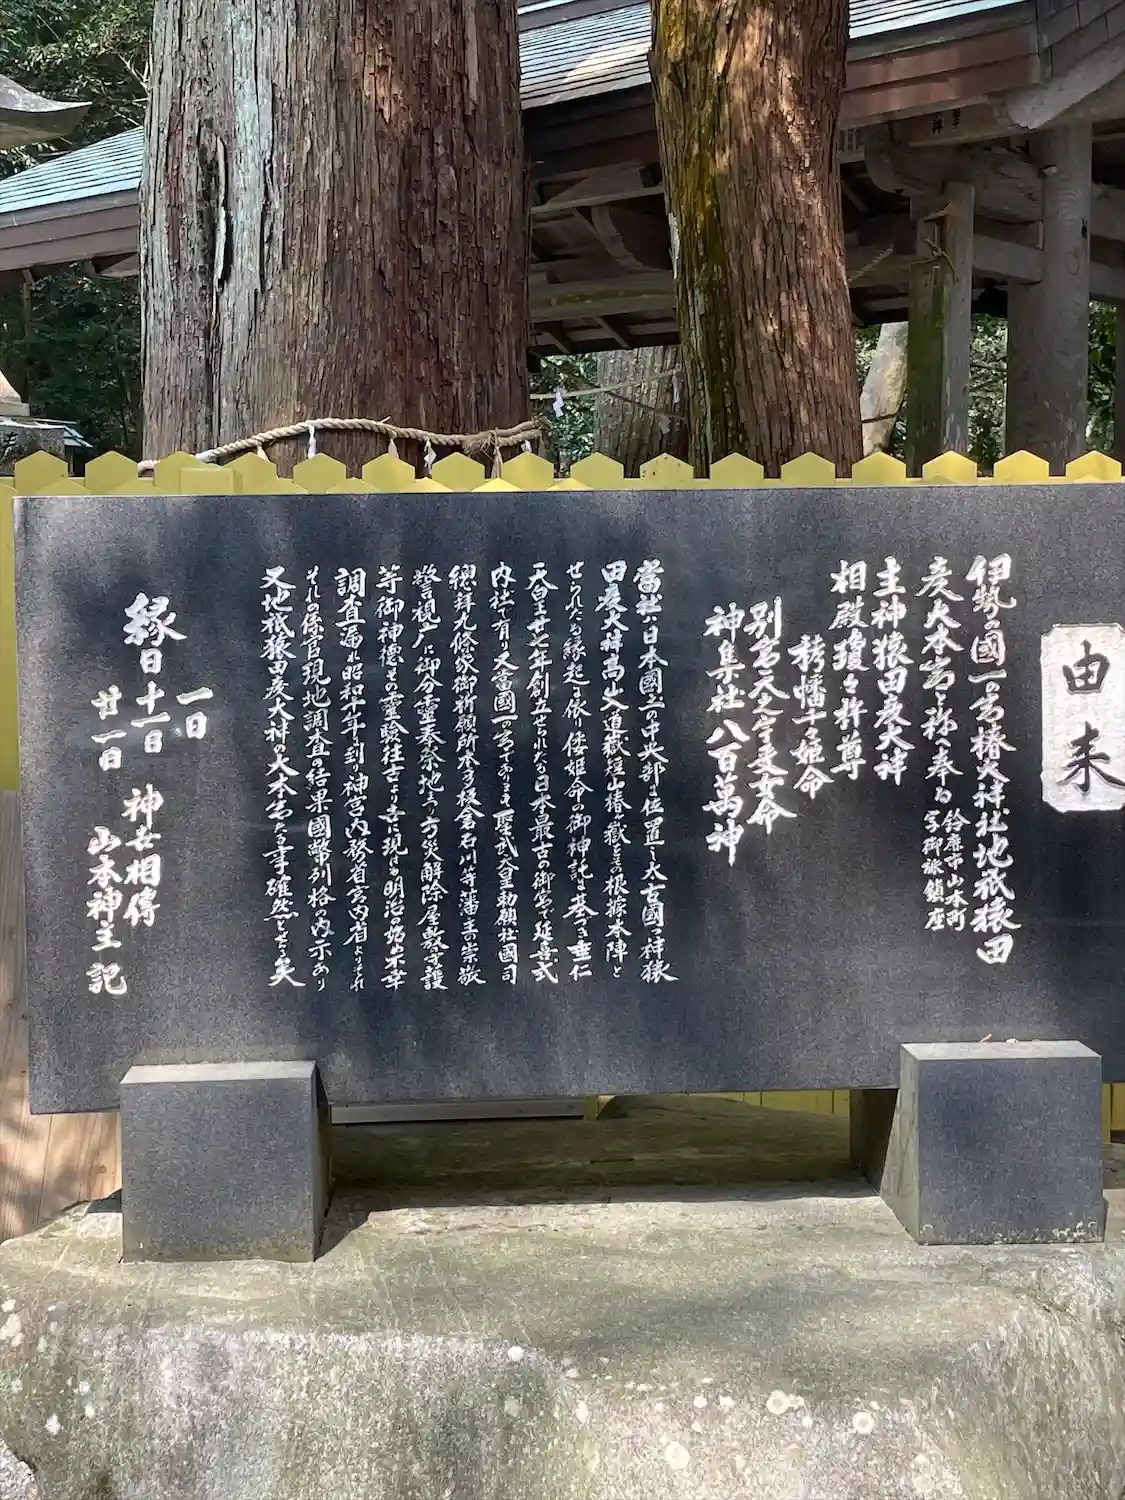 由来
伊勢の國一の宮椿大神社地祇猿田
彦大本宮と称へ奉る 鈴鹿市山本町
主神猿田彦大神
相殿瓊々杵尊
栲幡千々姫命
別宮天之宇受女命
神集社八百萬神
當社ハ日本國土の中央部に位置し太古國つ神猿
田彦大神高山入道嶽短山椿ヶ嶽をその根據本陣と
せられたる縁起に依り倭姫命の御神託に基き垂仁
天皇廿七年創立せられたる日本最古の御宮で延喜式
内社で有り又當國一の宮であります聖武天皇勅願社國司
總拝九條家御祈願所本多板倉石川等藩主の崇敬
警視庁に御分霊奉祭地の方災解除屋敷守護
等御神徳その靈験往古より
調査漏れ昭和十年に到り神宮内務省宮内省より
それの係官現地調査の結果國幣列格の内示あり
又地祇猿田彦大神の大本宮たる事確然とせり矣
一日
縁日十一日
廿一日
神世相傳
山本神主記